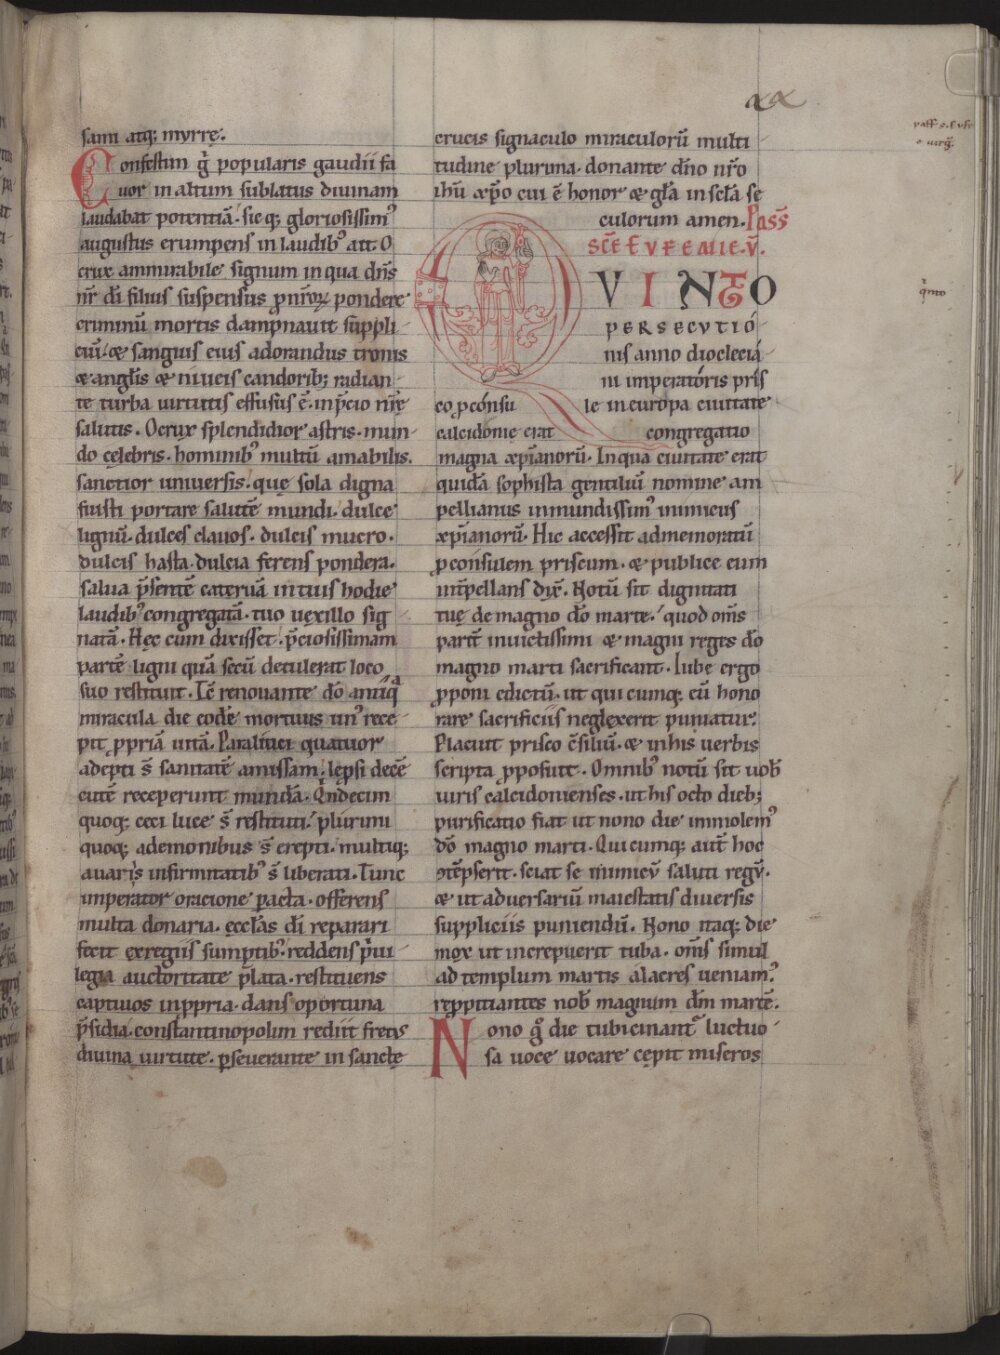 xx
sam atq; myrrę.
Confestim g̊ popularis gaudii fa
uor in altum sublatus diuinam
laudabat potentiā. sicq; gloriosissimꝰ
augustus erumpens in laudibꝰ ait. O
crux ammirabile signum in qua dn̄s
nr̄ dī filius suspensus ꝓ nr̄oꝝ pondere
criminū mortis dampnauit suppli
ciū. & sanguis eius adorandus tronis
& angl̄is & niueis candorib; radian
te turba uirtutis effusus ē. in p̄cio nr̄ę
salutis. O crux splendidior astris. mun
do cęlebris. hominibꝰ multū amabilis.
sanctior uniuersis. quę sola digna
fuisti portare salutē mundi. dulce
lignū. dulces clauos. dulcis mucro.
dulcis hasta. dulcia ferens pondera.
salua p̄sentē cateruā in tuis hodie
laudibꝰ congregatā. tuo uexillo sig
natā. Hęc cum dixisset. p̄ciosissimam
partē ligni quā secū detulerat loco
suo restituit. Tc̄ renouante dō antiq̄
miracula die eodē mortuus unꝰ rece
pit ꝓpriā uitā. Paralitici quatuor
adepti s̄ sanitatē amissam. lepsi decē
cutē receperunt mundā. Q̇ndecim
quoq; ceci luce s̄ restituti. plurimi
quoq; a demonibus s̄ erepti. multiq;
a uariis infirmitatibꝰ s̄ liberati. Tunc
imperator oracione pacta. offerens
multa donaria. ęccl̄as dī reparari
fecit ex regiis sumptibꝰ. reddens p̄ui
legia auctoritate p̄lata. restituens
captiuos in ꝓpria. dans oportuna
p̄sidia. constantinopolim rediit fretus
diuina uirtute. ꝑseuerante in sanctę
crucis signaculo miraculorū multi
tudine plurima. donante dn̄o nr̄o
ihū xp̄o cui ē honor & gl̄a in scl̄a se
culorum amen. Pass̄
SC̄E EVFEMIE. V̄.
QVINTO
PERSECVTIO
nis anno diocleciā
ni imperatoris pris
co ꝓconsule in europa ciuitate
calcidonię erat congregatio
magna xp̄ianorū. In qua ciuitate erat
quidā sophista gentiliū nomine am
pellianus inmundissimꝰ inimicus
xp̄ianorū. Hic accessit ad memoratū
ꝓconsulem priscum. & publice eum
int̄pellans dix̄. Notū sit dignitati
tuę de magno dō marte. quod om̄s
partē inuictissimi & magni reges dō
magno marti sacrificant. Iube ergo
ꝓponi edictū. ut qui cumq; eū hono
rare sacrificiis neglexerit puniatur.
Placuit prisco c̄siliū. & in his uerbis
scripta ꝓposuit. Omnibꝰ notū sit uob̄
uiris calcidonienses. ut his octo dieb;
purificatio fiat ut nono die immolemꝰ
dō magno marti. Qui cumq; aut̄ hoc
ꝯtēpserit. sciat se inimicū saluti regū.
& ut aduersariū maiestatis diuersis
suppliciis puniendū. Nono itaq; die
mox ut increpuerit tuba. om̄s simul
ad templum martis alacres ueniamꝰ
reppitiantes nob̄ magnum dm̄ martē.
Nono g̊ die tubicinantᷣ luctuo
sa uoce uocare cępit miseros
q̇nto